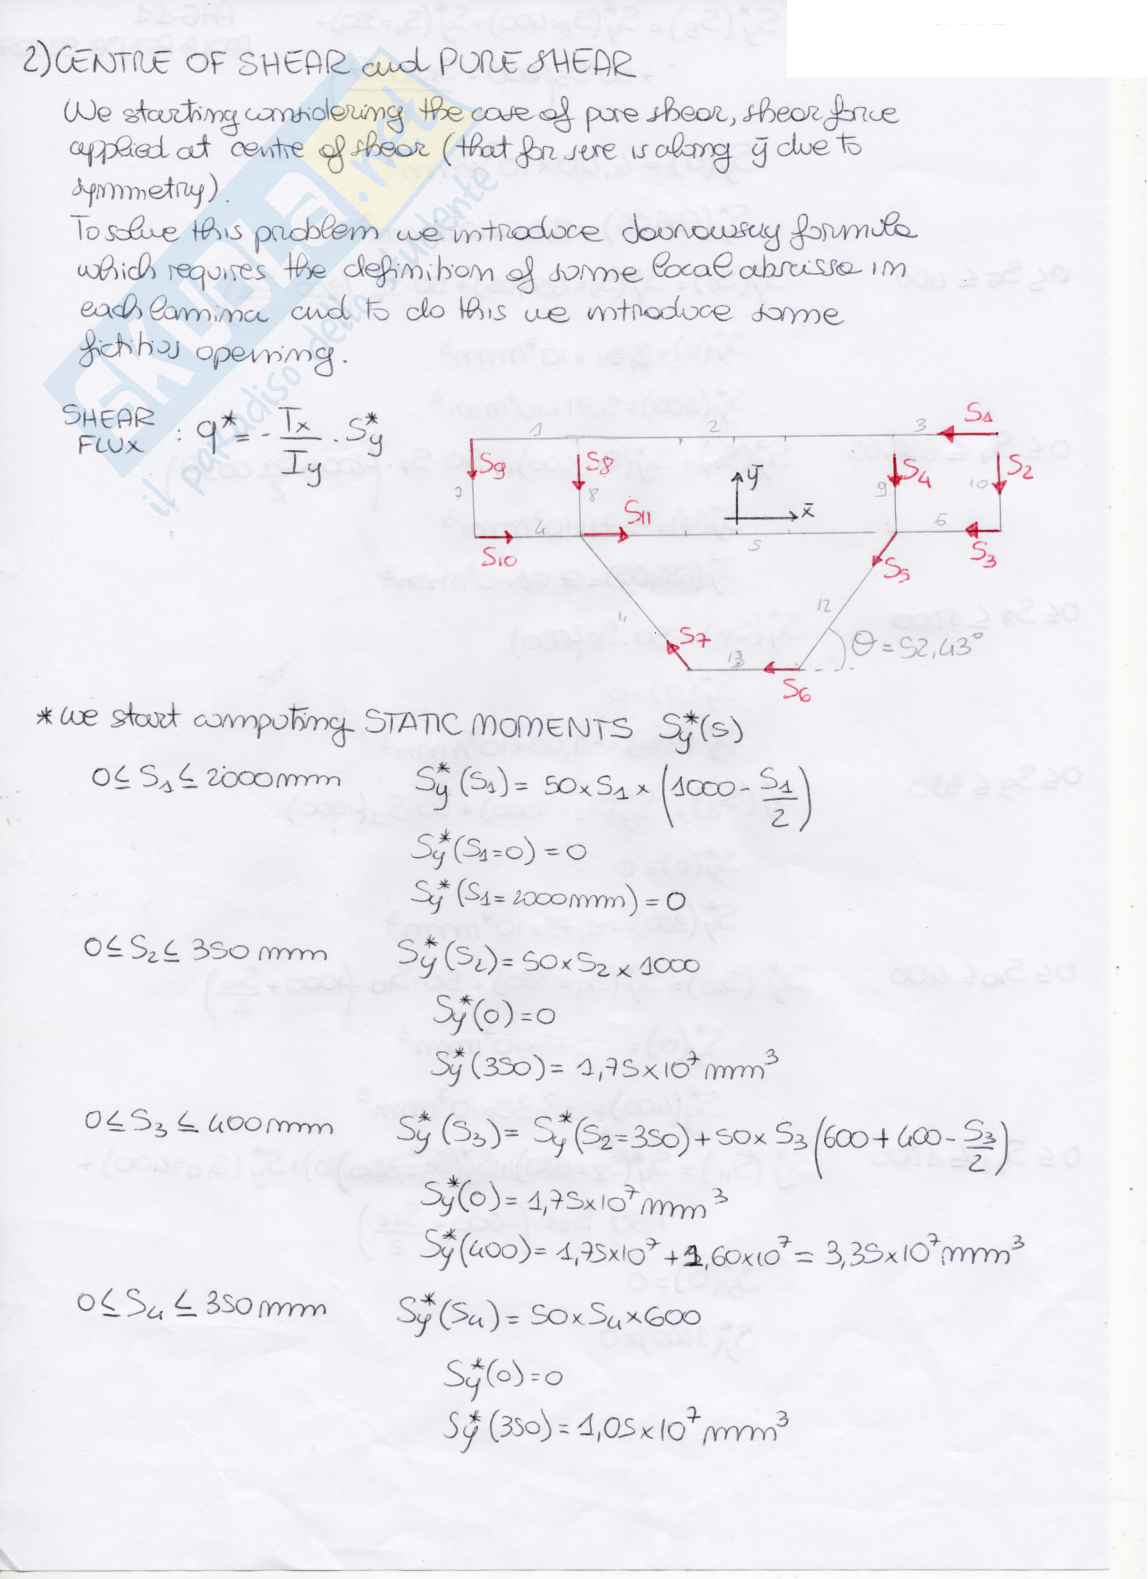 2) CENTRE OF SHEAR and PURE SHEAR
We starting considering the case of pure shear, shear force
applied at centre of shear (that for sure is along ȳ due to
symmetry).
To solve this problem we introduce Jourawsky formula
which requires the definition of some local abscissa in
each lamina and to do this we introduce some
opening.
SHEAR FLUX : q* = - Tx/Iy · Sy*
1 2 3 S1
S9 S8 S4 S2
7 8 9 10
ȳ x̄
S10 4 S11 5 6 S3
S5
11 12
S7 13 S6 θ = 52,43°
* we start computing STATIC MOMENTS Sy*(s)
0 ≤ S1 ≤ 2000mm Sy*(S1) = 50 x S1 x (1000 - S1/2)
Sy*(S1=0) = 0
Sy*(S1=2000mm) = 0
0 ≤ S2 ≤ 350 mm Sy*(S2) = 50 x S2 x 1000
Sy*(0) = 0
Sy*(350) = 1,75 x 10⁷ mm³
0 ≤ S3 ≤ 400mm Sy*(S3) = Sy*(S2=350) + 50 x S3 (600 + 400 - S3/2)
Sy*(0) = 1,75 x 10⁷ mm³
Sy*(400) = 1,75 x 10⁷ + 1,60 x 10⁷ = 3,35 x 10⁷ mm³
0 ≤ S4 ≤ 350mm Sy*(S4) = 50 x S4 x 600
Sy*(0) = 0
Sy*(350) = 1,05 x 10⁷ mm³
SKUOLA.net
il paradiso dello studente